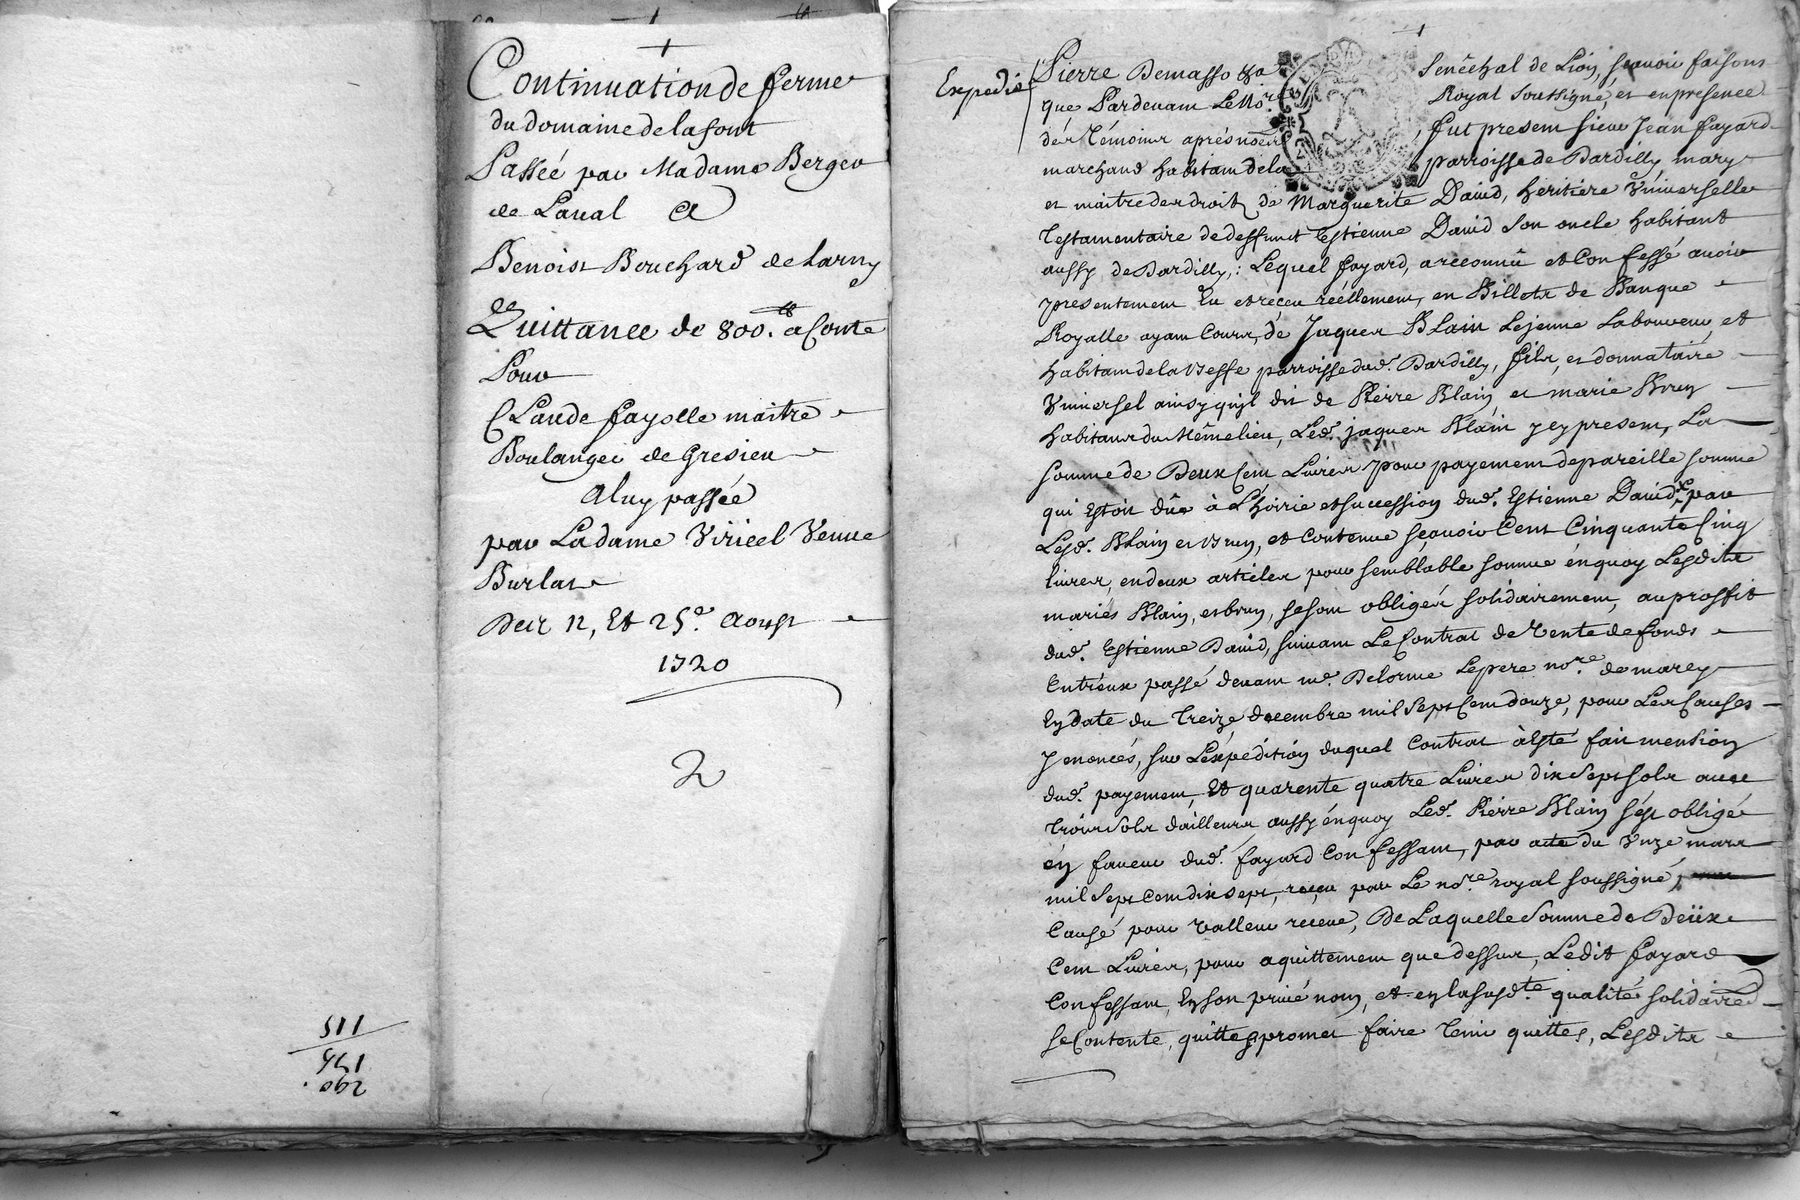 Continuation de ferme
du domaine de lafont
Passée par Madame Berger
de Laval a
Benoist Bouchard de Larny
Quittance de 800.ᵗᵗ a Conte
Pour
Claude fayolle maitre
Boulanger de Gresieu
a luy passée
par La dame Viricel Veuue
Burlat
Des 12, Et 25ᵉ. Aoust
1720
2
290.
175
115
Expedié
Pierre Demasso &a Senêchal de Lion, sçauoir faisons
que Pardeuant Le Nore. Royal soussigné, et en presence
des Témoins aprés només, fut present sieur Jean fayard
marchand habitant de la parroisse de Dardilly mary
et maitre des droits de Marguerite Dauid, héritiere Vniverselle
Testamentaire de deffunct Estienne Dauid son oncle habitant
aussy de Dardilly,: Lequel fayard, a reconnû et Confessé auoir
presentement Eu et receu réellement, en Billets de Banque
Royalle ayant Cours, de Jaques Blain Lejeune Laboureur, et
habitant de la Besse parroisse dud. Dardilly, fils, et donnataire
Vniversel ainsy quil dit de Pierre Blain et marie Brun
habitans du Mêmelieu, Led. jaques Blain y present, La
somme de Deux Cent Liures pour payement de pareille somme
qui Estoit dûe à L'hoirie et succession dud. Estienne Dauid, par
Lesd. Blain et Brun, et Contenue sçauoir Cent Cinquante Cinq
liures, en deux articles pour semblable somme énquoy Lesdits
mariés Blain, et brun, se sont obligés solidairement, au proffit
dud. Estienne Dauid, suiuant Le Contrat de Vente de fonds
Entreux passé deuant me. Delorme Le pere nore. de marcy
En date du Treize decembre mil Sept Cent douze, pour Les Causes
y enoncés, sur L'éxpédition duquel Contrat à Esté fait mention
dud. payement, Et quarente quatre Liures dix Sept sols auec
trois sols d'ailleurs aussy énquoy Led. Pierre Blain s'ést obligé
én faueur dud. fayard Confessant, par acte du Vnze mars
mil Sept Cent dix sept, reçu par Le nore royal soussigné,
Causé pour Valleur receue, De Laquelle Somme de Deüx
Cent Liures, pour aquittement que dessus, Ledit fayard
Confessant, En son priué nom, et en la susdte. qualité solidaire
se Contente, quitte & promet faire tenir quittes, Lesdits